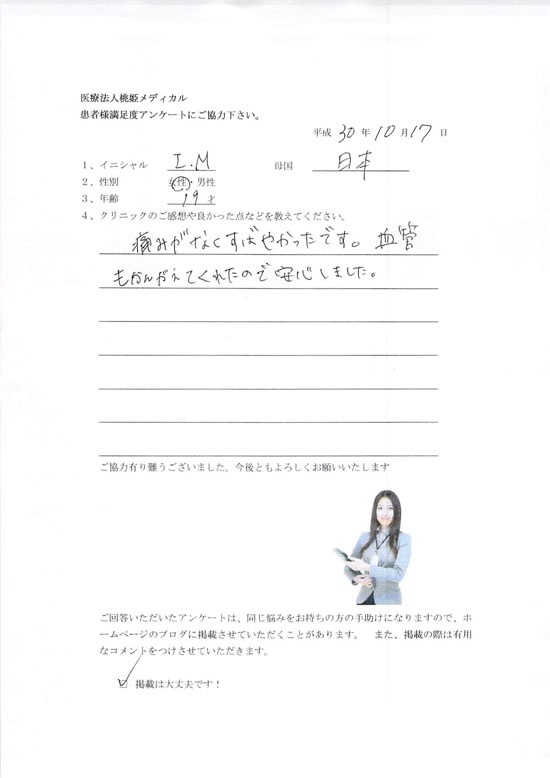 医療法人桃姫メディカル
患者様満足度アンケートにご協力下さい。
平成 30 年 10 月 17 日
1、イニシャル I.M 母国 日本
2、性別 女性・男性
3、年齢 19 才
4、クリニックのご感想や良かった点などを教えてください。
痛みがなくすばやかったです。血管
もかんがえてくれたので安心しました。
ご協力有り難うございました。今後ともよろしくお願いいたします
ご回答いただいたアンケートは、同じ悩みをお持ちの方の手助けになりますので、ホ
ームページのブログに掲載させていただくことがあります。 また、掲載の際は有用
なコメントをつけさせていただきます。
☑ 掲載は大丈夫です！